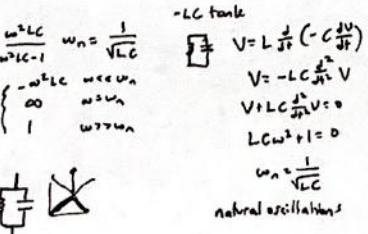 ω²LC / ω²LC-1   ωₙ = 1/√LC
-ω²LC   ω<<ωₙ
∞   ω≈ωₙ
1   ω>>ωₙ
-LC tank
V = L d/dt (-C dV/dt)
V = -LC d²/dt² V
V + LC d²/dt² V = 0
LCω² + 1 = 0
ωₙ = 1/√LC
natural oscillations